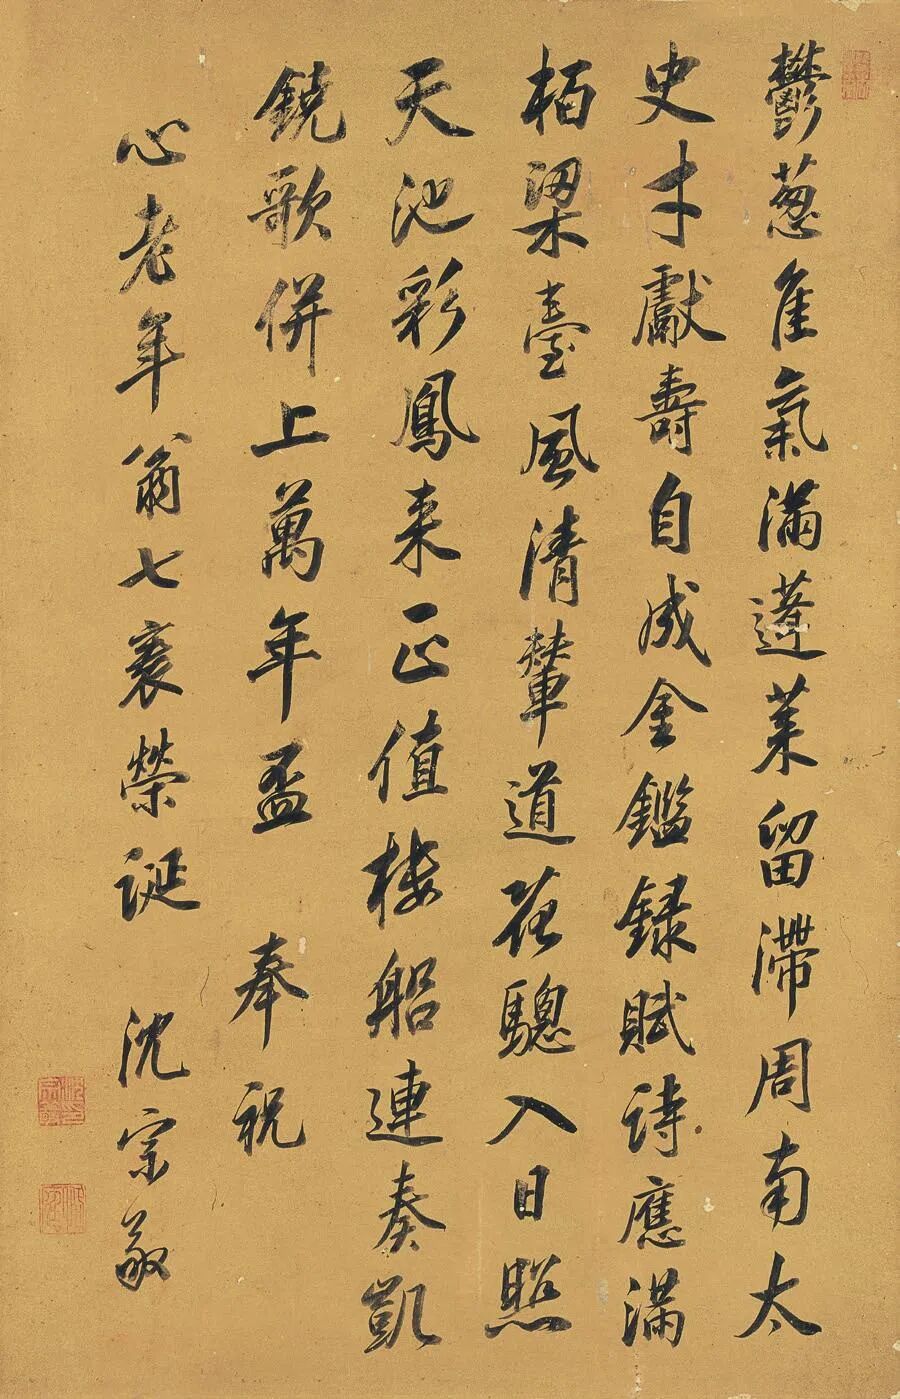 鬱葱佳氣滿蓬萊留滯周南太
史才獻壽自成金鑑録賦詩應滿
栢梁臺風清輦道花驄入日照
天池彩鳳来正值樓船連奏凱
鐃歌併上萬年盃 奉祝
心老年翁七袠榮誕 沈宗敬